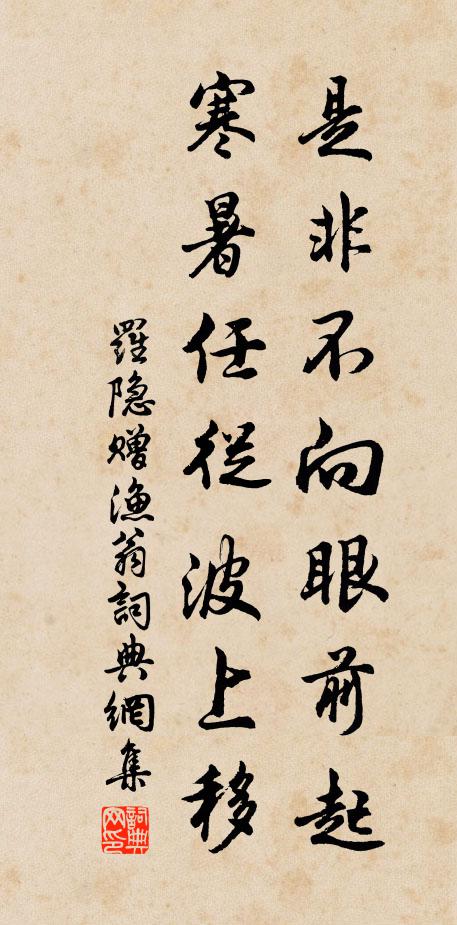 是非不向眼前起
寒暑任從波上移
羅隐贈漁翁詞典網集
詞典网印